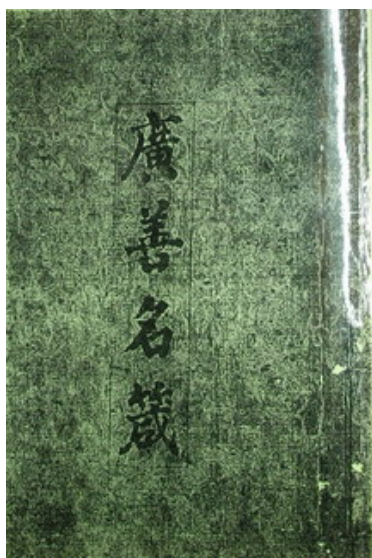 廣善名箴